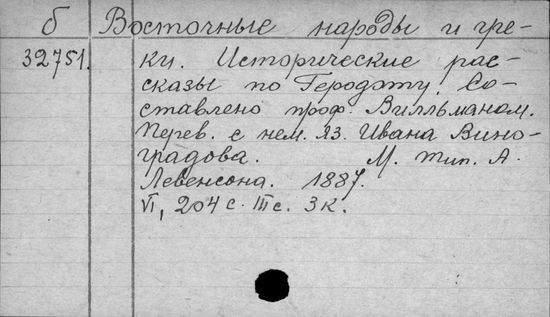 б Восточные народы и гре-
32751. ки. Исторические рас-
сказы по Геродоту. Со-
ставлено проф. Вилльманом.
Перев. с нем. яз. Ивана Вино-
градова. М. тип. А.
Левенсона. 1887.
VI, 204 с. III с. 3 к.